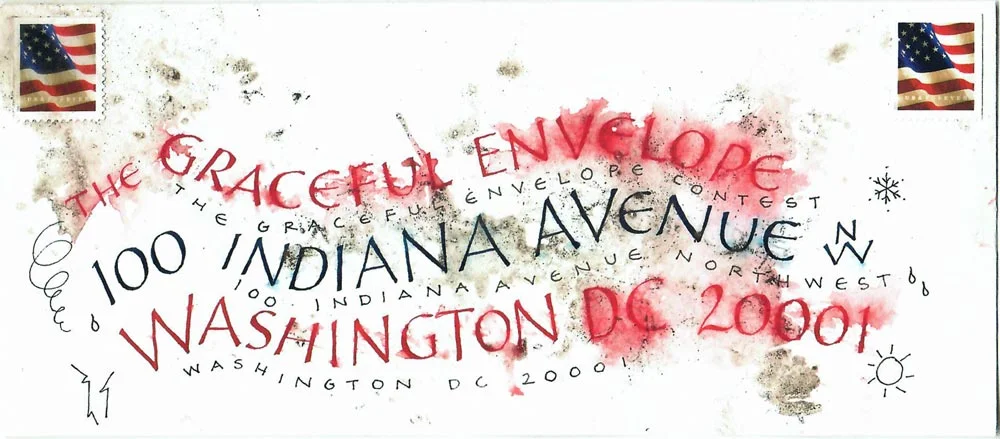 THE GRACEFUL ENVELOPE
THE GRACEFUL ENVELOPE CONTEST
100 INDIANA AVENUE NW
100 INDIANA AVENUE NORTHWEST
WASHINGTON DC 20001
WASHINGTON DC 20001
USA FOREVER
USA FOREVER